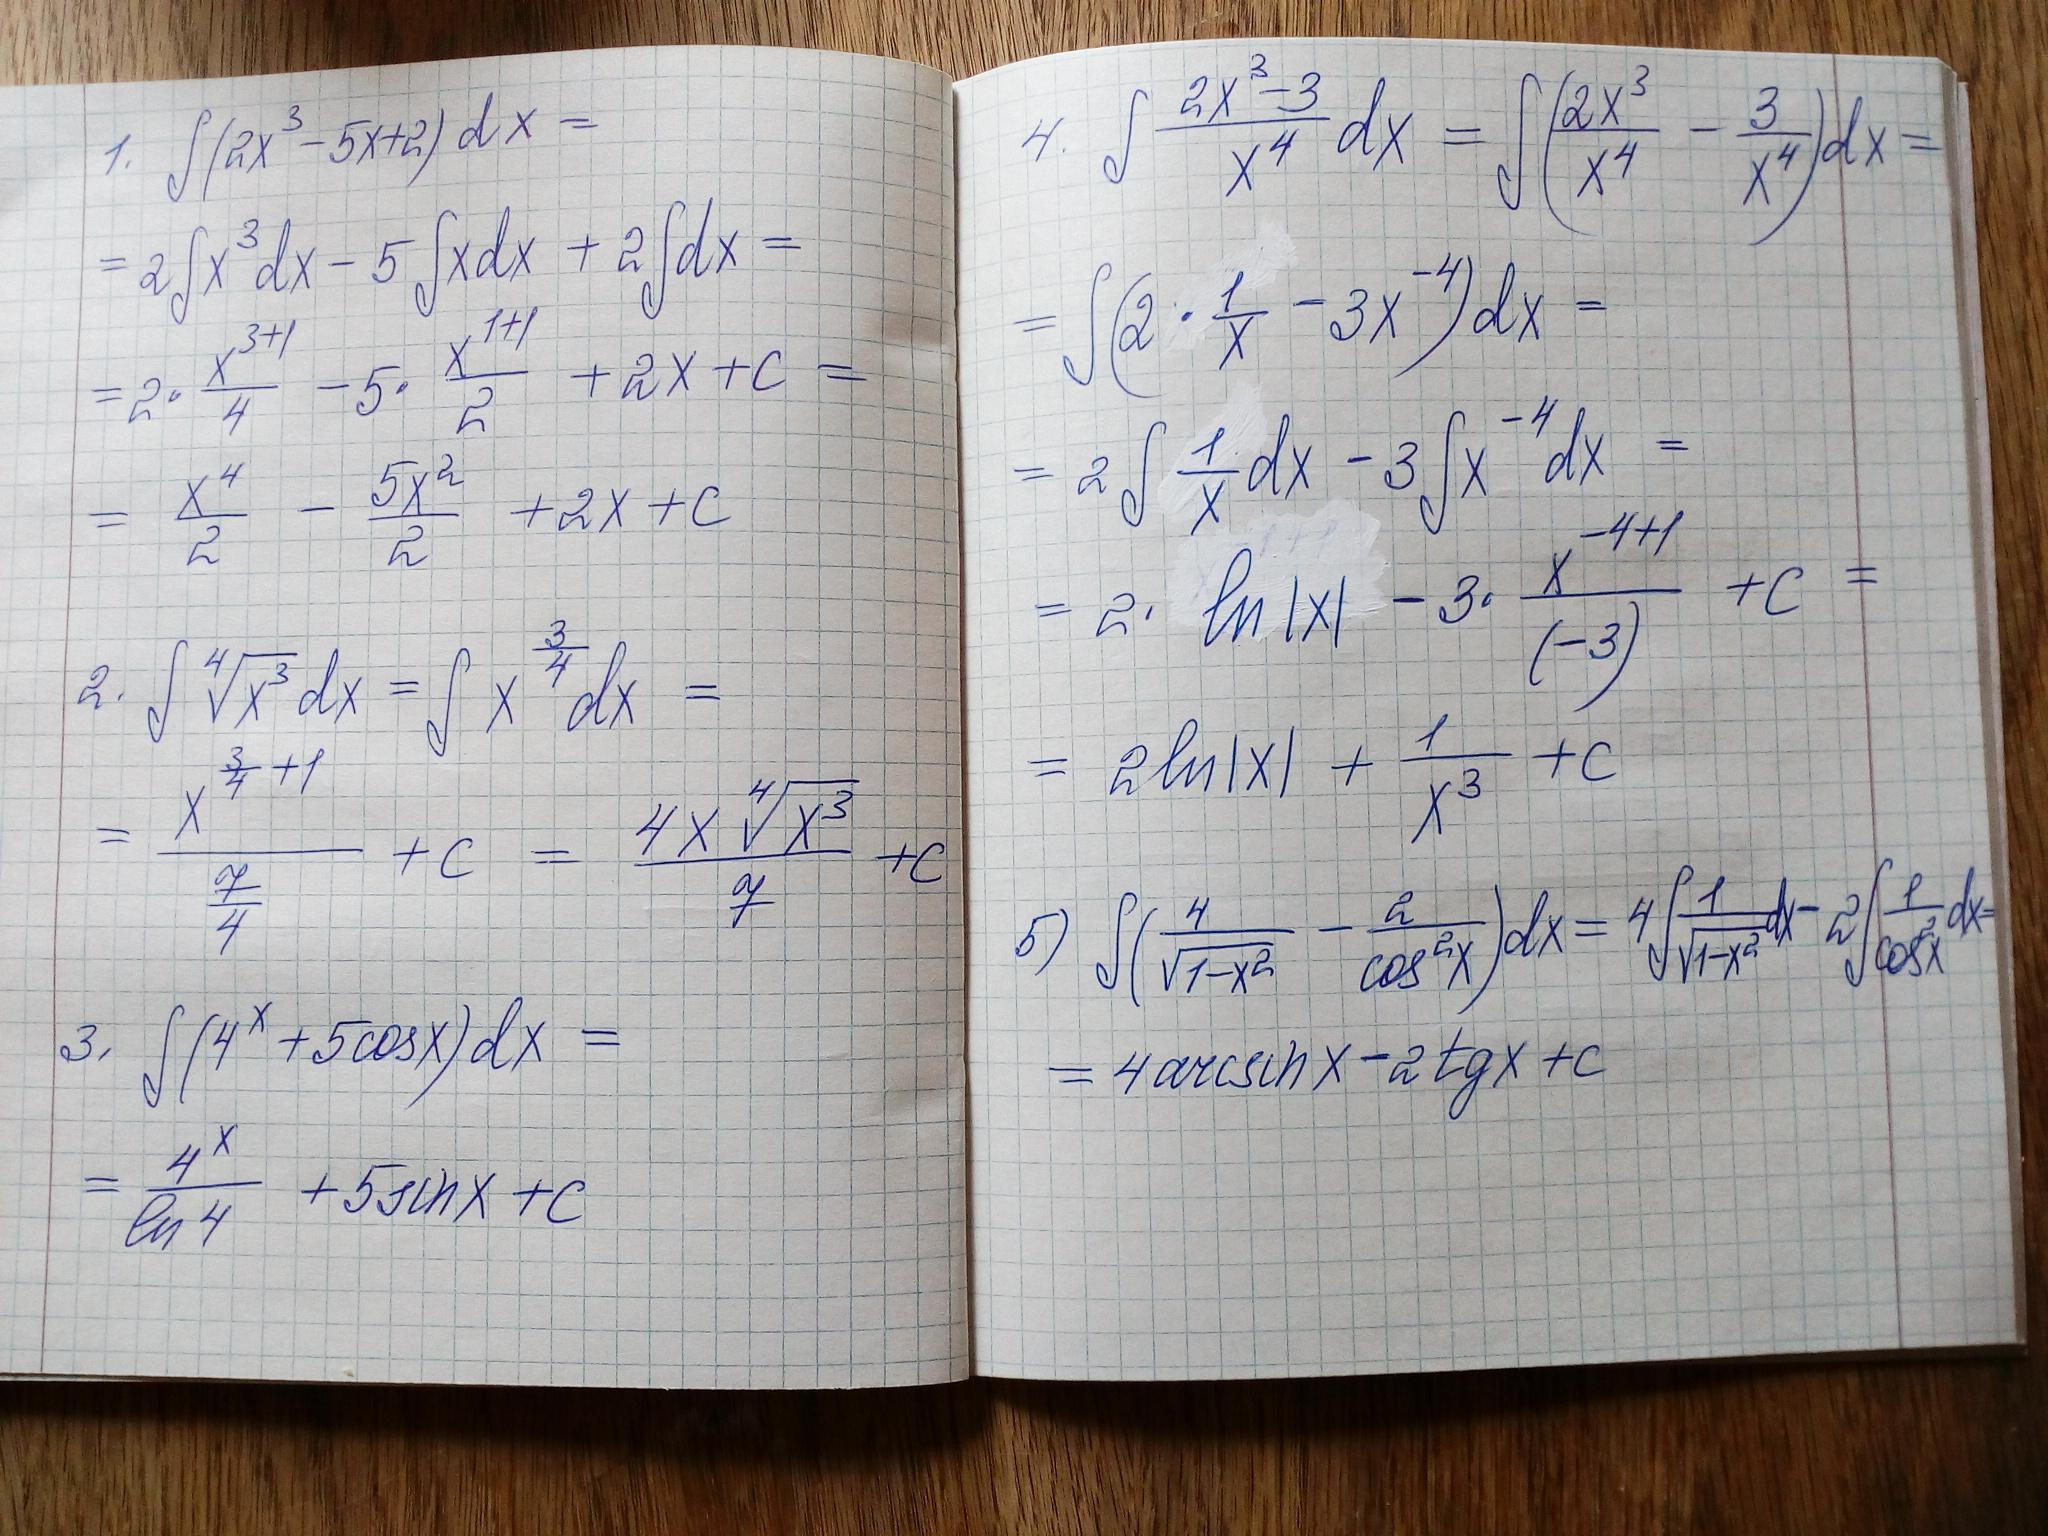 1. ∫(2x³-5x+2)dx =
= 2∫x³dx - 5∫xdx + 2∫dx =
= 2 · x³⁺¹/4 - 5 · x¹⁺¹/2 + 2x + C =
= x⁴/2 - 5x²/2 + 2x + C
2. ∫ ⁴√x³ dx = ∫ x^(3/4) dx =
= x^(3/4+1)/(7/4) + C = 4x ⁴√x³/7 + C
3. ∫(4ˣ + 5cosx)dx =
= 4ˣ/ln4 + 5sinx + C
4. ∫ (2x³-3)/x⁴ dx = ∫(2x³/x⁴ - 3/x⁴)dx =
= ∫(2 · 1/x - 3x⁻⁴)dx =
= 2∫ 1/x dx - 3∫x⁻⁴dx =
= 2 · ln|x| - 3 · x⁻⁴⁺¹/(-3) + C =
= 2ln|x| + 1/x³ + C
5) ∫(4/√(1-x²) - 2/cos²x)dx = 4∫ 1/√(1-x²) dx - 2∫ 1/cos²x dx =
= 4arcsinx - 2tgx + C